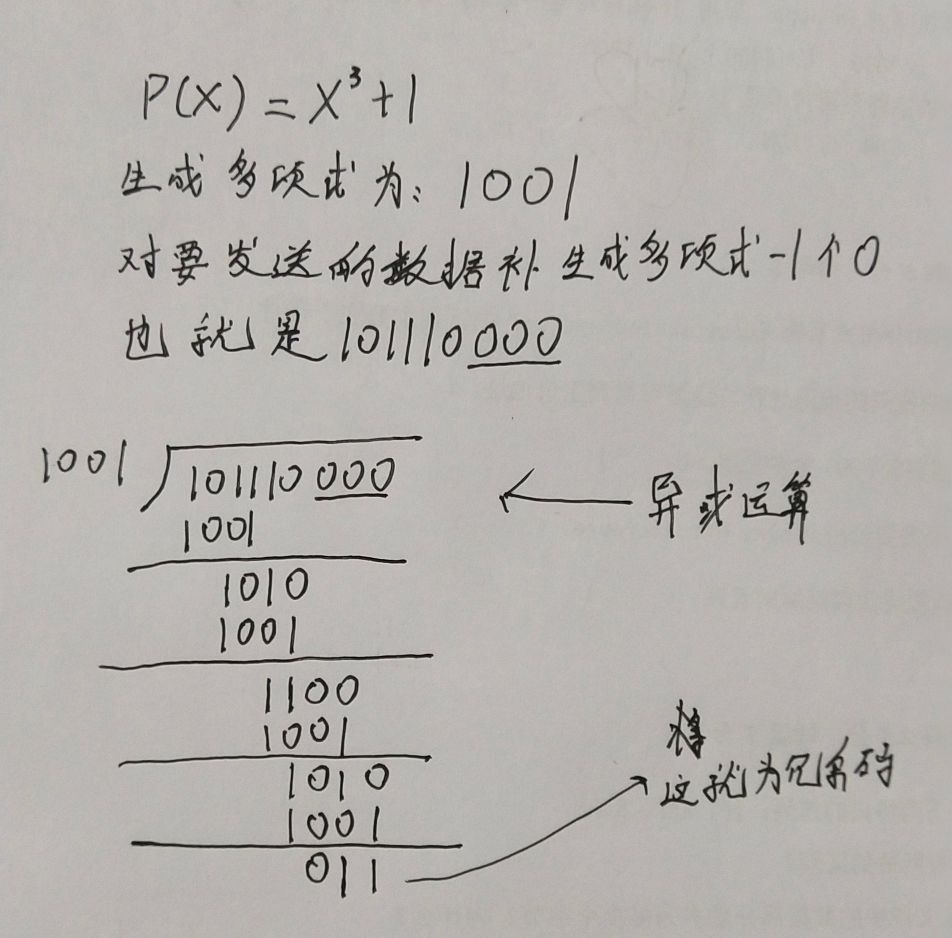 P(X) = X³+1
生成多项式为: 1001
对要发送的数据补生成多项式-1个0
也就是101110000
1001 101110000
← 异或运算
1001
1010
1001
1100
1001
1010
1001
011
这就为冗余码